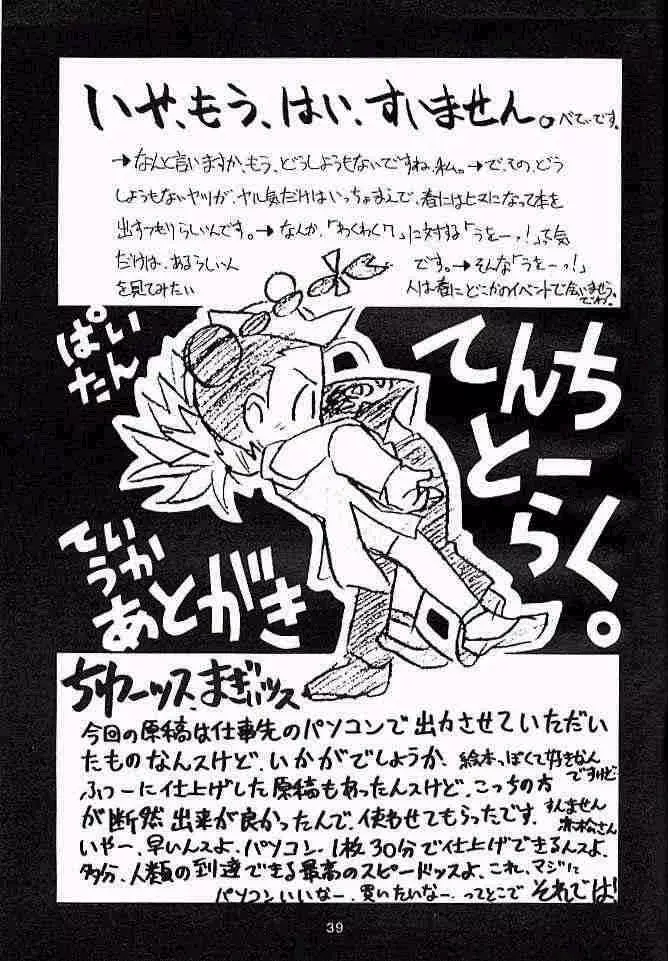 いや、もう、はい、すいません。べてぃです。
→なんと言いますか、もう、どうしようもないですね、私。→で、その、どう
しようもないヤツが、ヤル気だけはいっちょまえで、春にはヒマになって本を
出すつもりらしいんです。→なんか、「わくわく7」に対する「うをーっ!」って気
だけは、あるらしいんです。→そんな「うをーっ!」
を見てみたい人は春にどこかのイベントで会いませう。
でわ。
ぱい
たん
てんち
とーく。
らく。
ていうか
あとがき
ちゅーッス、まぎぃッス
今回の原稿は仕事先のパソコンで出力させていただい
たものなんスけど、いかがでしょうか、絵本っぽくて好きなん
ですけど
ふつーに仕上げした原稿もあったんスけど、こっちの方
が断然出来が良かったんで、使わせてもらったです。すんません
赤松さん
いやー、早いんスよ、パソコン、1枚30分で仕上げできるんスよ、
多分、人類の到達できる最高のスピードッスよ、これ、マジに
パソコンいいなー、買いたいなー、ってとこで それでは!
39